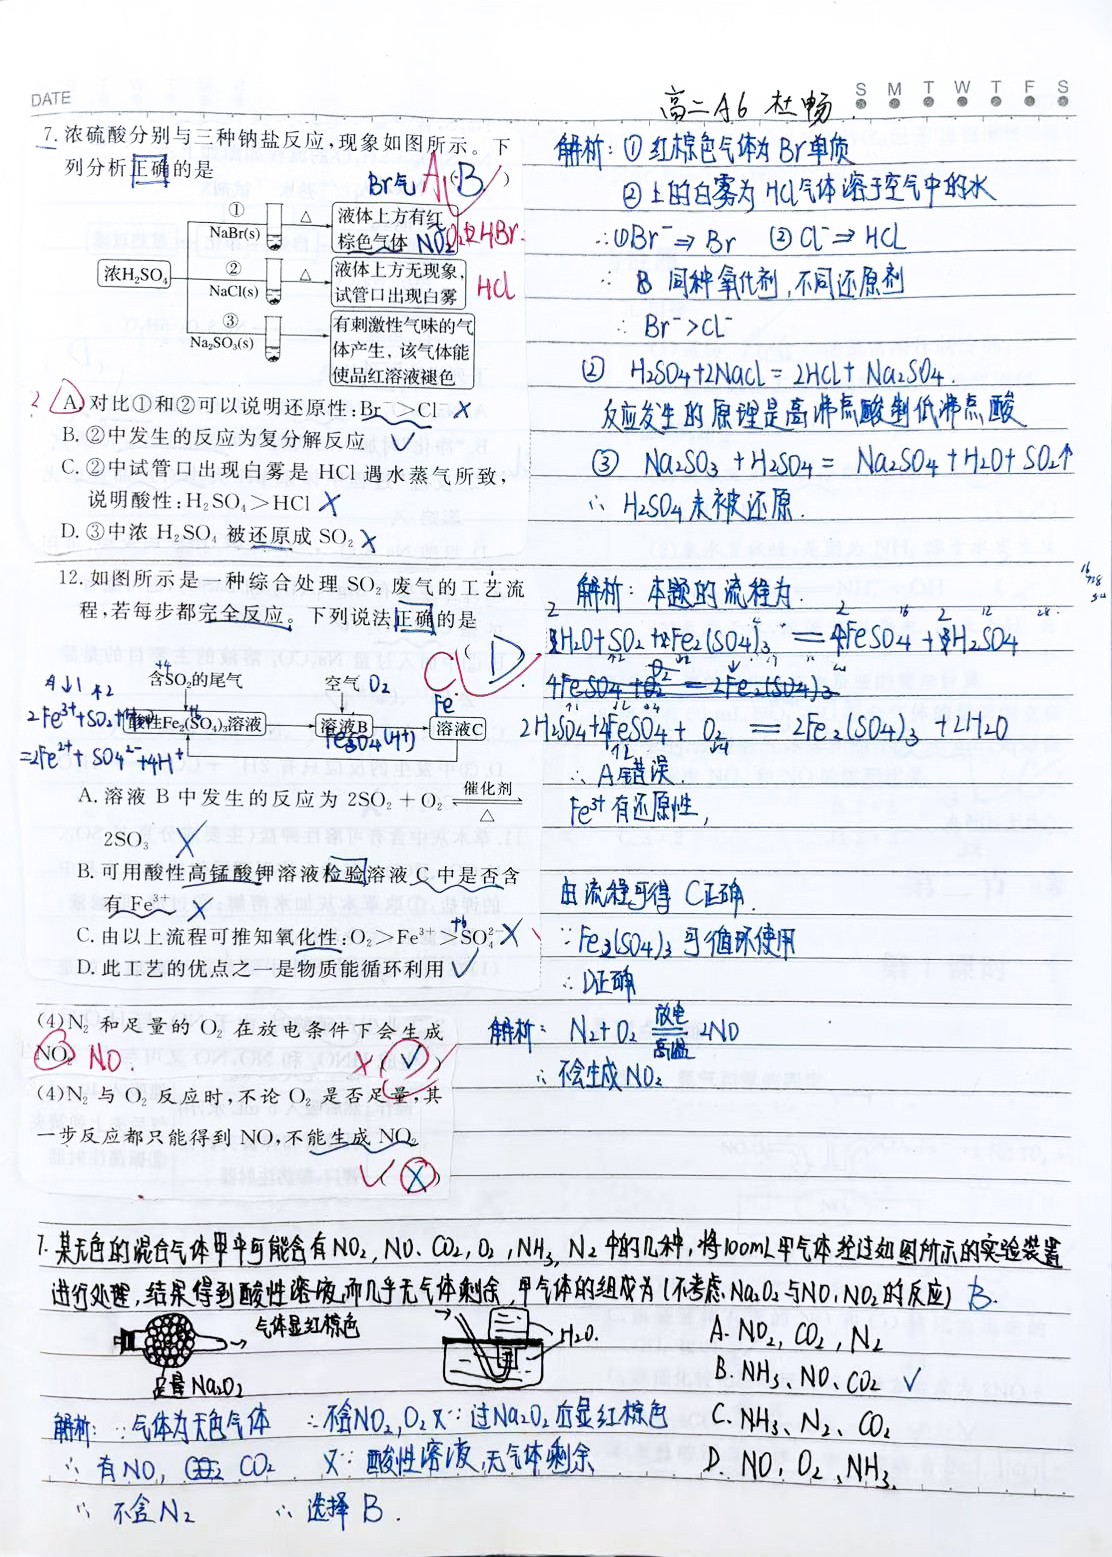 DATE
S M T W T F S
高二A6 杜畅
7. 浓硫酸分别与三种钠盐反应,现象如图所示。下
列分析正确的是
Br气 A B )
浓H₂SO₄
①
NaBr(s)
△
液体上方有红
棕色气体
NO₂
HBr.
②
NaCl(s)
△
液体上方无现象,
试管口出现白雾
HCl
③
Na₂SO₃(s)
有刺激性气味的气
体产生,该气体能
使品红溶液褪色
A. 对比①和②可以说明还原性:Br⁻>Cl⁻ X
B. ②中发生的反应为复分解反应 ✓
C. ②中试管口出现白雾是 HCl 遇水蒸气所致,
说明酸性:H₂SO₄>HCl X
D. ③中浓 H₂SO₄ 被还原成 SO₂ X
解析: ① 红棕色气体为Br单质
② 上的白雾为 HCl气体溶于空气中的水
∴①Br⁻⇒Br ② Cl⁻⇒HCl
∴ B 同种氧化剂,不同还原剂
∴ Br⁻>Cl⁻
② H₂SO₄+2NaCl=2HCl+Na₂SO₄.
反应发生的原理是高沸点酸制低沸点酸
③ Na₂SO₃+H₂SO₄= Na₂SO₄+H₂O+SO₂↑
∴ H₂SO₄未被还原.
12. 如图所示是一种综合处理 SO₂ 废气的工艺流
程,若每步都完全反应。下列说法正确的是
( D )
C
含SO₂的尾气
空气 O₂
Fe
酸性Fe₂(SO₄)₃溶液
溶液B
溶液C
2Fe³⁺+SO₂+
=2Fe²⁺+SO₄²⁻+4H⁺
A. 溶液 B 中发生的反应为 2SO₂+O₂ 催化剂 △
2SO₃ X
B. 可用酸性高锰酸钾溶液检验溶液 C 中是否含
有 Fe³⁺ X
C. 由以上流程可推知氧化性:O₂>Fe³⁺>SO₄²⁻ X
D. 此工艺的优点之一是物质能循环利用 ✓
解析: 本题的流程为.
H₂O+SO₂+Fe₂(SO₄)₃ = FeSO₄+H₂SO₄
4FeSO₄+O₂=2Fe₂(SO₄)₃
2H₂SO₄+4FeSO₄+O₂ = 2Fe₂(SO₄)₃+2H₂O
∴ A错误
Fe³⁺有还原性,
由流程可得 C正确.
∵ Fe₂(SO₄)₃可循环使用
∴ D正确
(4)N₂ 和足量的 O₂ 在放电条件下会生成
NO₂ NO. X ( ✓ )
(4)N₂ 与 O₂ 反应时,不论 O₂ 是否足量,其
一步反应都只能得到 NO,不能生成 NO₂
✓ ( X )
解析: N₂+O₂ 放电 高温 2NO
∴ 不会生成NO₂
7. 某无色的混合气体甲中可能含有NO₂, NO. CO₂, O₂, NH₃, N₂ 中的几种,将100mL甲气体经过如图所示的实验装置
进行处理,结果得到酸性溶液,而几乎无气体剩余,甲气体的组成为(不考虑Na₂O₂与NO,NO₂的反应) B.
气体显红棕色
足量 Na₂O₂
H₂O.
A. NO₂, CO₂, N₂
B. NH₃、NO、CO₂ ✓
C. NH₃、N₂、CO₂
D. NO, O₂, NH₃.
解析: ∵气体为无色气体 ∴不含NO₂, O₂ 又∵过Na₂O₂后显红棕色
∴有NO, CO₂ 又∵酸性溶液,无气体剩余
∴ 不含N₂ ∴ 选择 B.